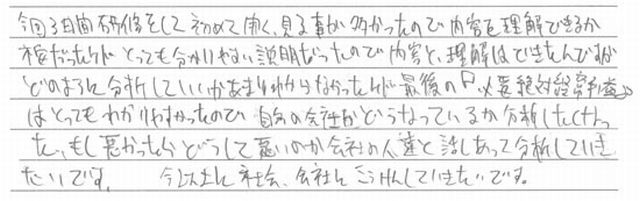 今回3日間研修をして初めて聞く、見る事が多かったので内容を理解できるか
不安だったけど とっても分かりやすい説明だったので内容と、理解はできたんですが
どのように分析していいかあまりわからなかったけど最後の「必要絶対経常利益」
はとってもわかりやすかったので 自分の会社がどうなっているか分析したくなっ
た、もし悪かったらどうして悪いのか会社の人達と話しあって分析していき
たいです。 今以上に社会、会社にこうけんしていきたいです。